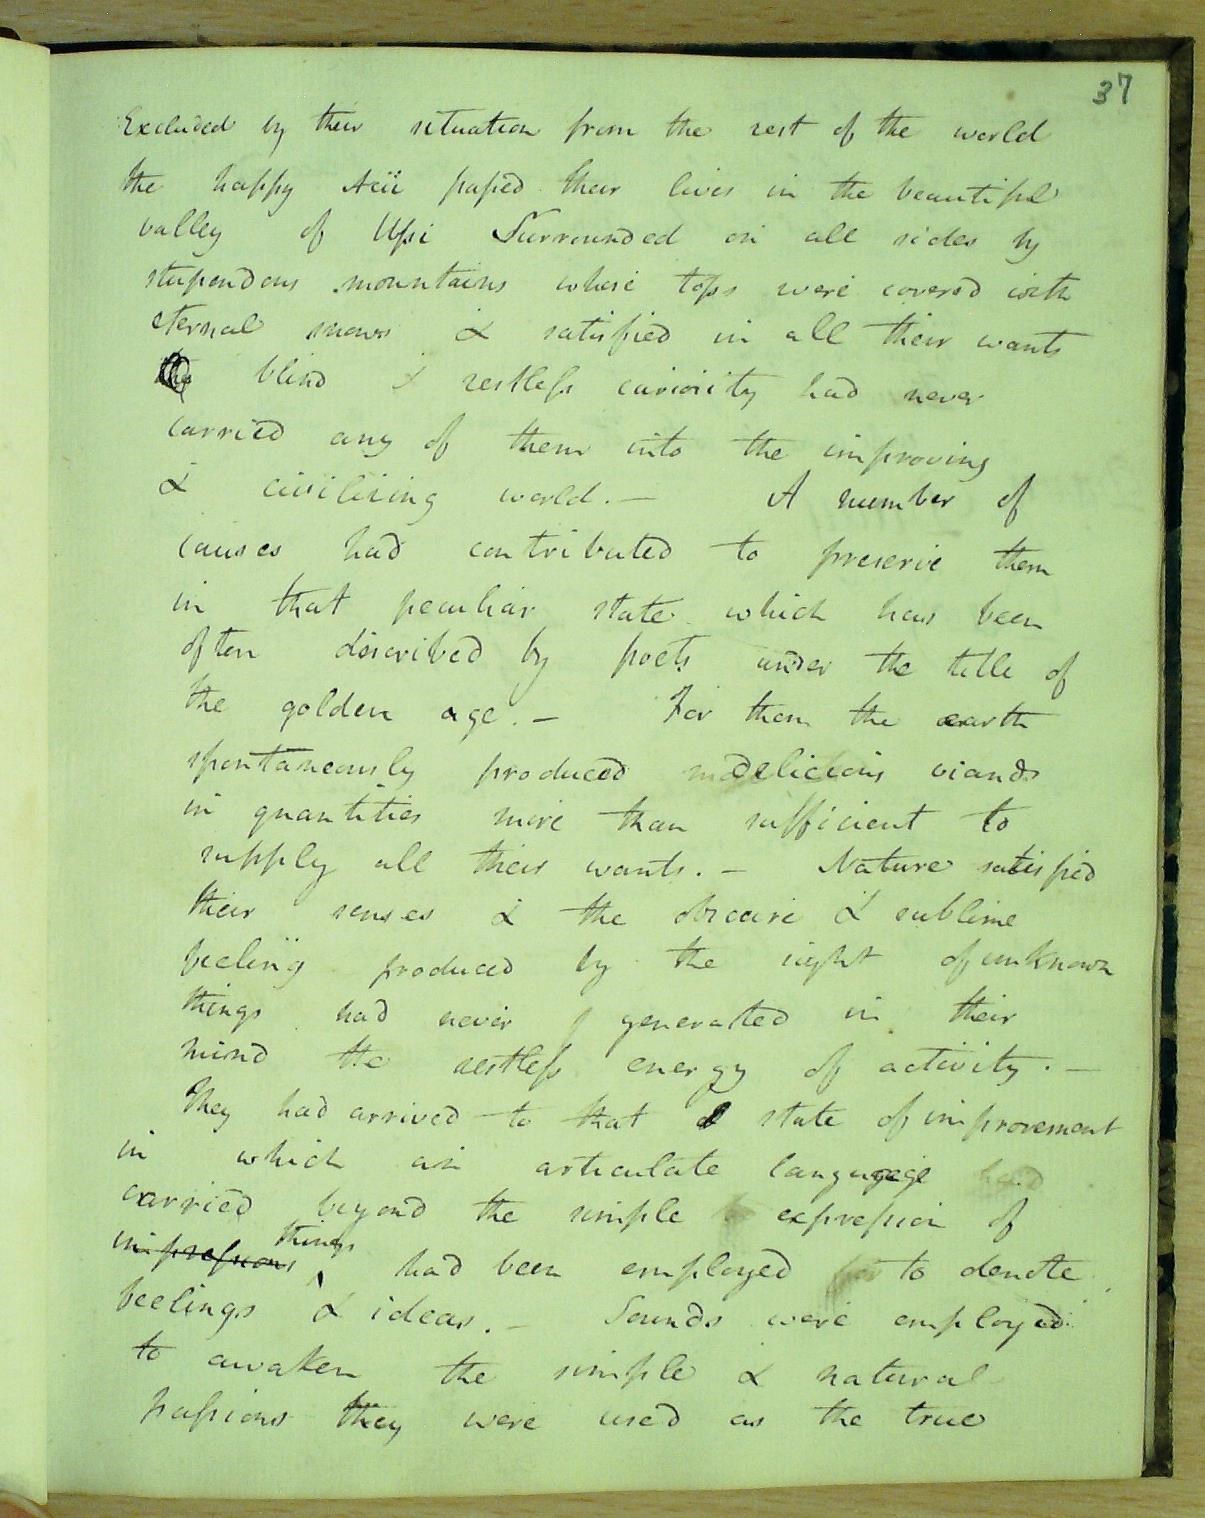 37
Excluded by their situation from the rest of the world
the happy Aeii passed their lives in the beautiful
valley of Ussi Surrounded on all sides by
stupendous mountains whose tops were covered with
eternal snows & satisfied in all their wants
the blind & restless curiosity had never
carried any of them into the improving
& civilizing world. — A number of
causes had contributed to preserve them
in that peculiar state which has been
often described by poets under the title of
the golden age. — For them the earth
spontaneously produced delicious viands
in quantities more than sufficient to
supply all their wants. — Nature satisfied
their senses & the obscure & sublime
feeling produced by the sight of unknown
things had never generated in their
mind the restless energy of activity. —
They had arrived to that state of improvement
in which an articulate language had
carried beyond the simple expression of
impressions things had been employed for to denote
feelings & ideas. — Sounds were employed
to awaken the simple & natural
passions they were used as the true